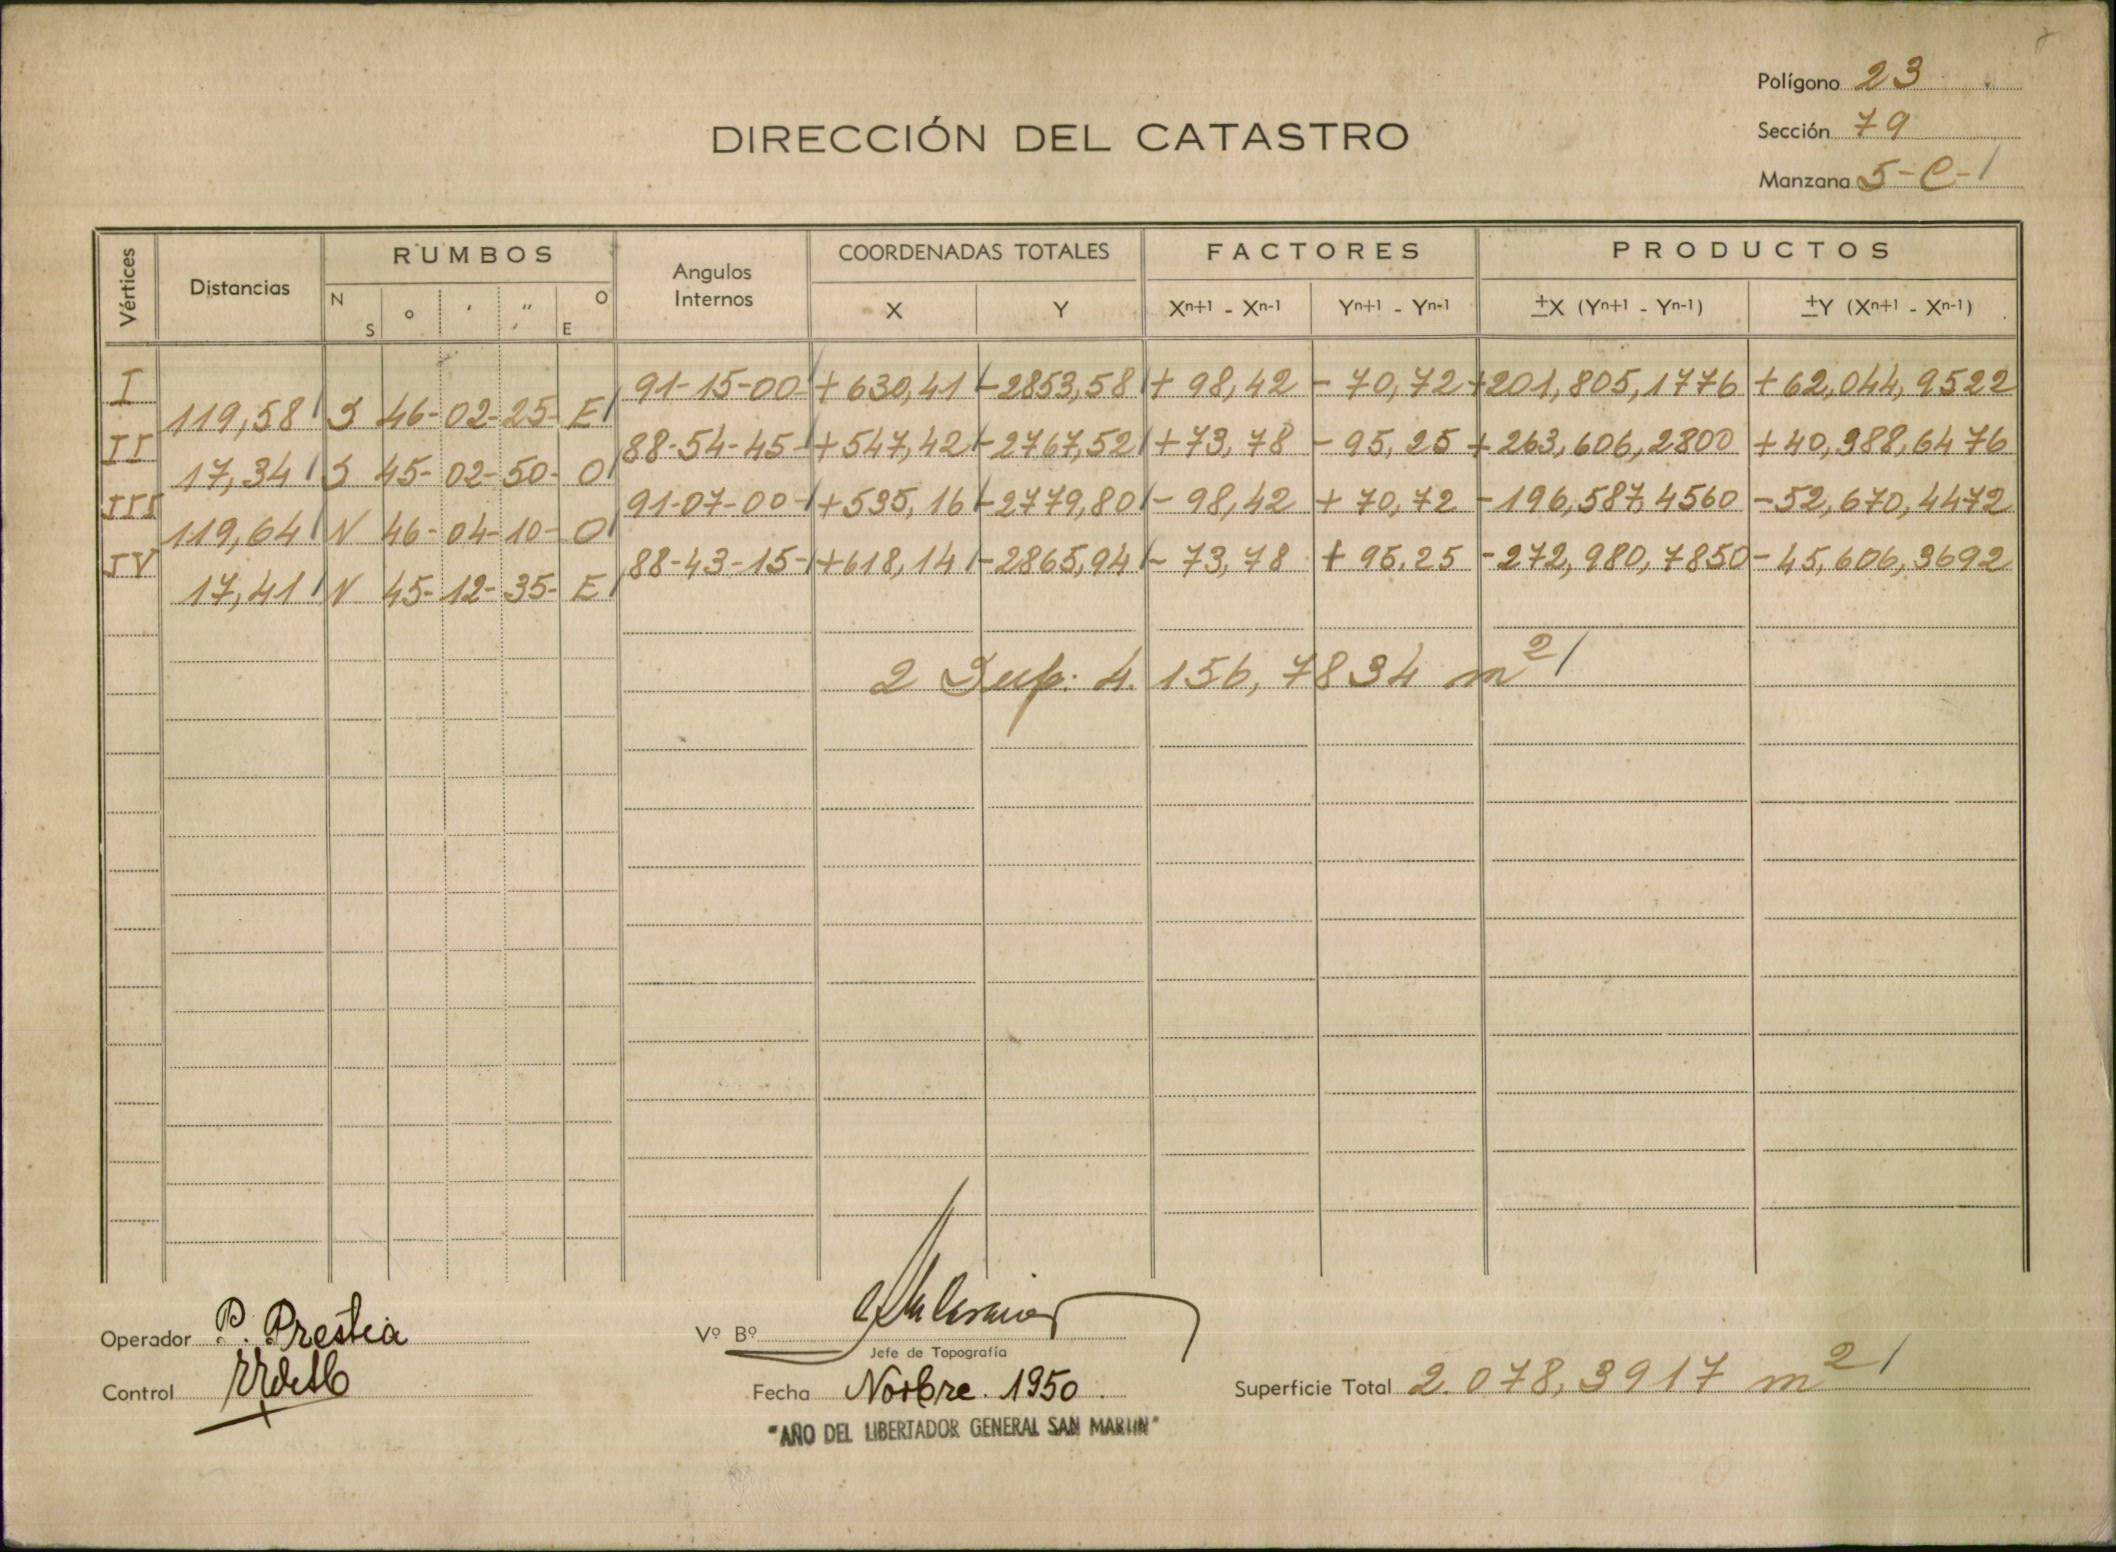 Polígono 23
DIRECCIÓN DEL CATASTRO
Sección 79
Manzana 5-C-1
Vértices Distancias RUMBOS Angulos Internos COORDENADAS TOTALES FACTORES PRODUCTOS
N S ° ' " O E X Y Xn+1 - Xn-1 Yn+1 - Yn-1 ±X (Yn+1 - Yn-1) ±Y (Xn+1 - Xn-1)
I 91-15-00 +630,41 -2853,58 + 98,42 - 70,72 +201,805,1776 +62,044,9522
119,58 S 46-02-25- E
II 88-54-45- +547,42 -2767,52 +73,78 - 95,25 +263,606,2800 +40,388,6476
17,34 S 45-02-50- O
III 91-07-00- +535,16 -2779,80 - 98,42 + 70,72 -196,587,4560 -52,670,4472
119,64 N 46-04-10- O
IV 88-43-15- +618,14 -2865,94 - 73,78 + 95,25 -272,980,7850 -45,606,3692
17,41 N 45-12-35- E
2 Sup. 4.156,7834 m2
Operador P. Prestia
Vº Bº
Jefe de Topografía
Control
Fecha Novbre. 1950.
Superficie Total 2.078,3917 m2
"AÑO DEL LIBERTADOR GENERAL SAN MARTIN"